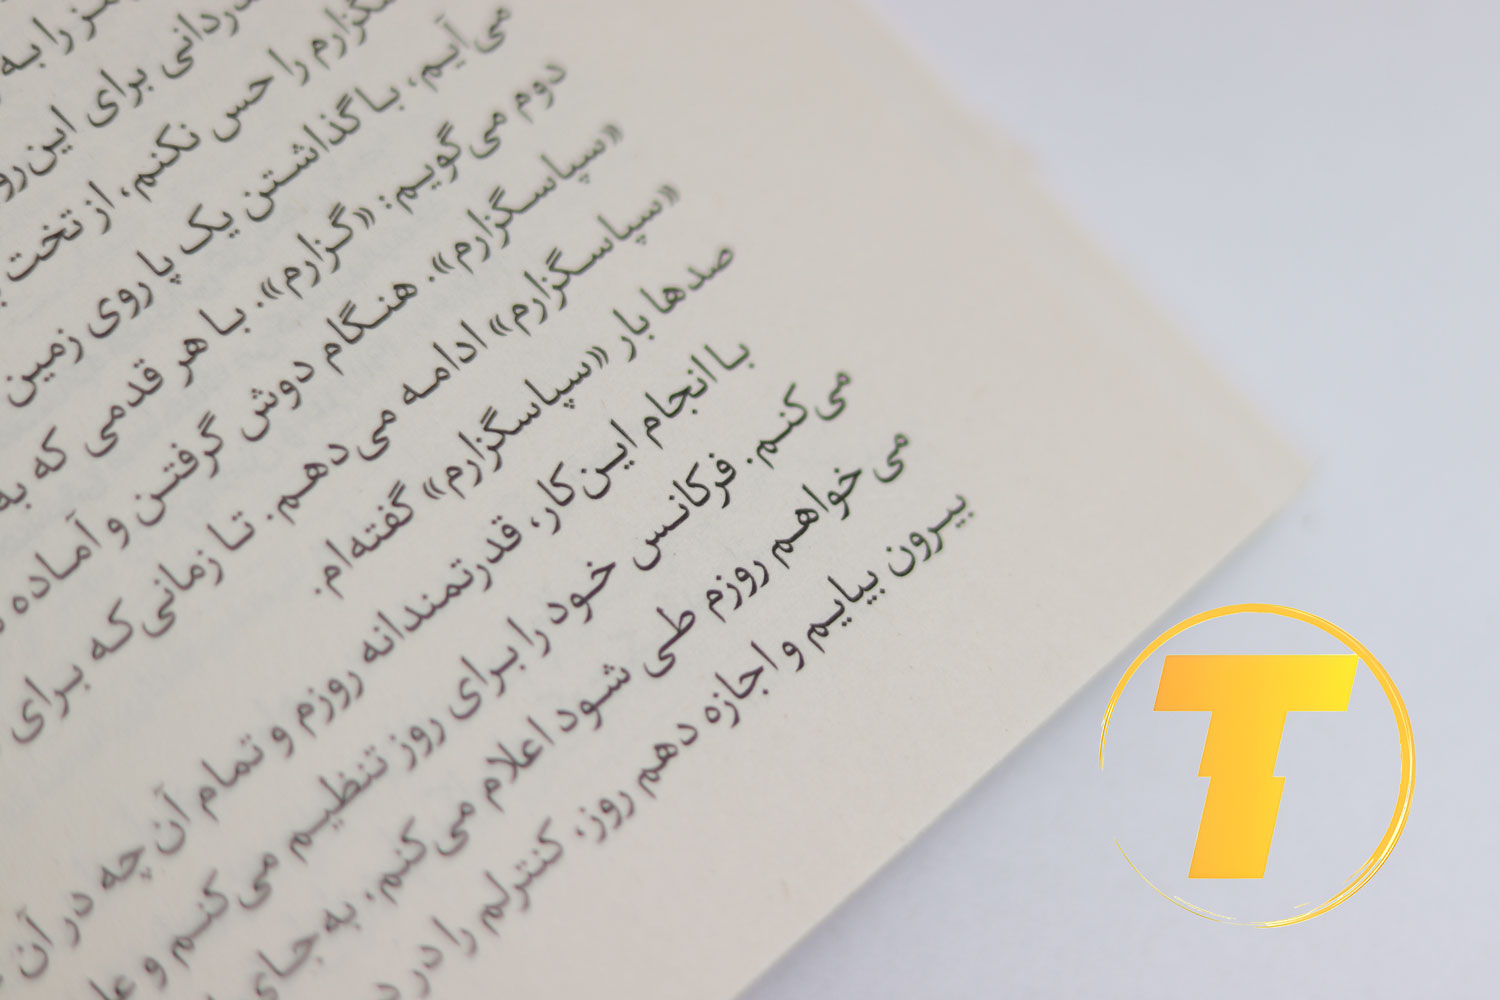 را به
برای این
را حس نکنم، از تخت
می‌آیم، با گذاشتن یک پا روی زمین
دوم می‌گویم: «گزارم». با هر قدمی که به
«سپاسگزارم». هنگام دوش گرفتن و آماده
«سپاسگزارم» ادامه می‌دهم. تا زمانی‌که برای
صدها بار «سپاسگزارم» گفته‌ام.
با انجام این‌کار، قدرتمندانه روزم و تمام آن چه در آن
می‌کنم. فرکانس خود را برای روز تنظیم می‌کنم و
می خواهم روزم طی شود اعلام می‌کنم. به جای
بیرون بیایم و اجازه دهم روز، کنترلم را در
T